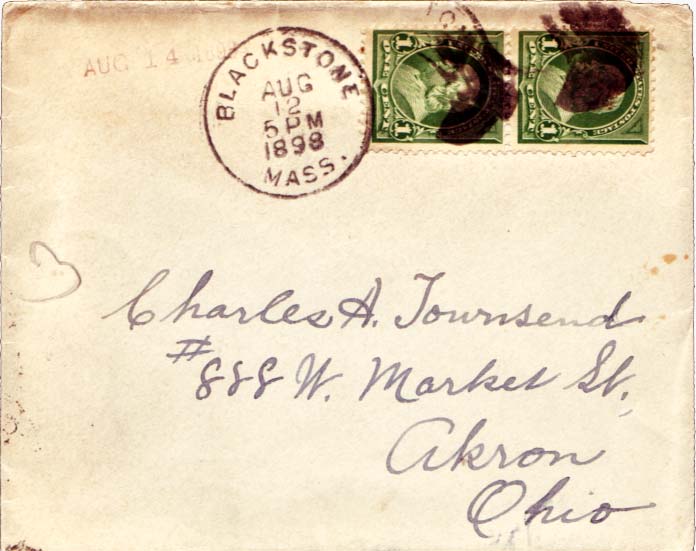 AUG 14
BLACKSTONE
AUG
12
5 PM
1898
MASS.
1 ONE CENT 1
1 ONE CENT 1
Charles A. Townsend
#888 W. Market St.
Akron
Ohio